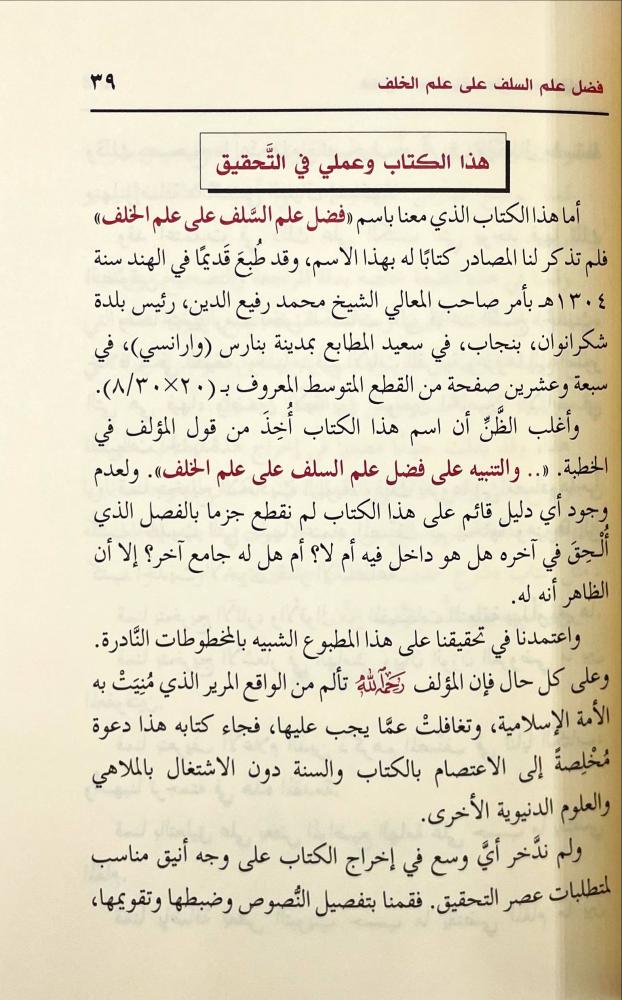 فضل علم السلف على علم الخلف ٣٩
هذا الكتاب وعملي في التَّحقيق
أما هذا الكتاب الذي معنا باسم «فضل علم السَّلف على علم الخلف»
فلم تذكر لنا المصادر كتابًا له بهذا الاسم، وقد طُبِعَ قَديمًا في الهند سنة
١٣٠٤هـ بأمر صاحب المعالي الشيخ محمد رفيع الدين، رئيس بلدة
شكرانوان، بنجاب، في سعيد المطابع بمدينة بنارس (وارانسي)، في
سبعة وعشرين صفحة من القطع المتوسط المعروف بـ (٢٠×٨/٣٠).
وأغلب الظَّنِّ أن اسم هذا الكتاب أُخِذَ من قول المؤلف في
الخطبة. «.. والتنبيه على فضل علم السلف على علم الخلف». ولعدم
وجود أي دليل قائم على هذا الكتاب لم نقطع جزما بالفصل الذي
أُلْحِقَ في آخره هل هو داخل فيه أم لا؟ أم هل له جامع آخر؟ إلا أن
الظاهر أنه له.
واعتمدنا في تحقيقنا على هذا المطبوع الشبيه بالمخطوطات النَّادرة.
وعلى كل حال فإن المؤلف رَحِمَهُ اللَّهُ تألم من الواقع المرير الذي مُنِيَتْ به
الأمة الإسلامية، وتغافلتْ عمَّا يجب عليها، فجاء كتابه هذا دعوة
مُخْلِصةً إلى الاعتصام بالكتاب والسنة دون الاشتغال بالملاهي
والعلوم الدنيوية الأخرى.
ولم ندَّخر أيَّ وسع في إخراج الكتاب على وجه أنيق مناسب
لمتطلبات عصر التحقيق. فقمنا بتفصيل النُّصوص وضبطها وتقويمها،